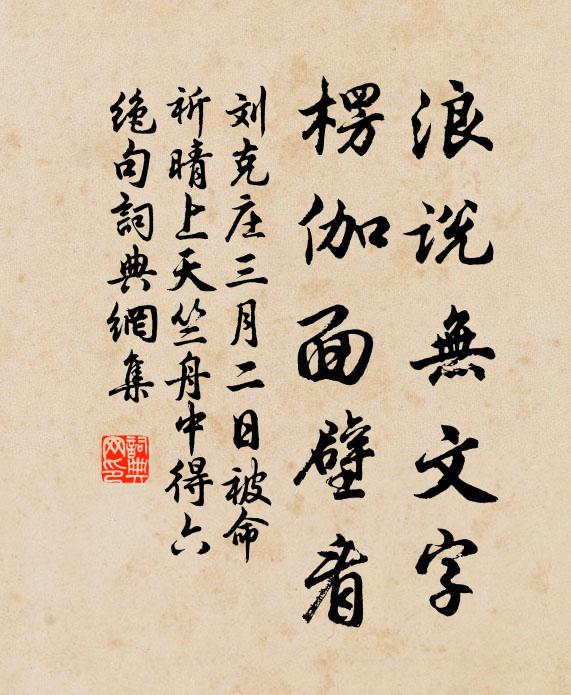 浪说無文字
楞伽面壁者
刘克庄三月二日被命
祈晴上天竺舟中得六
绝句詞典網集
詞典网印